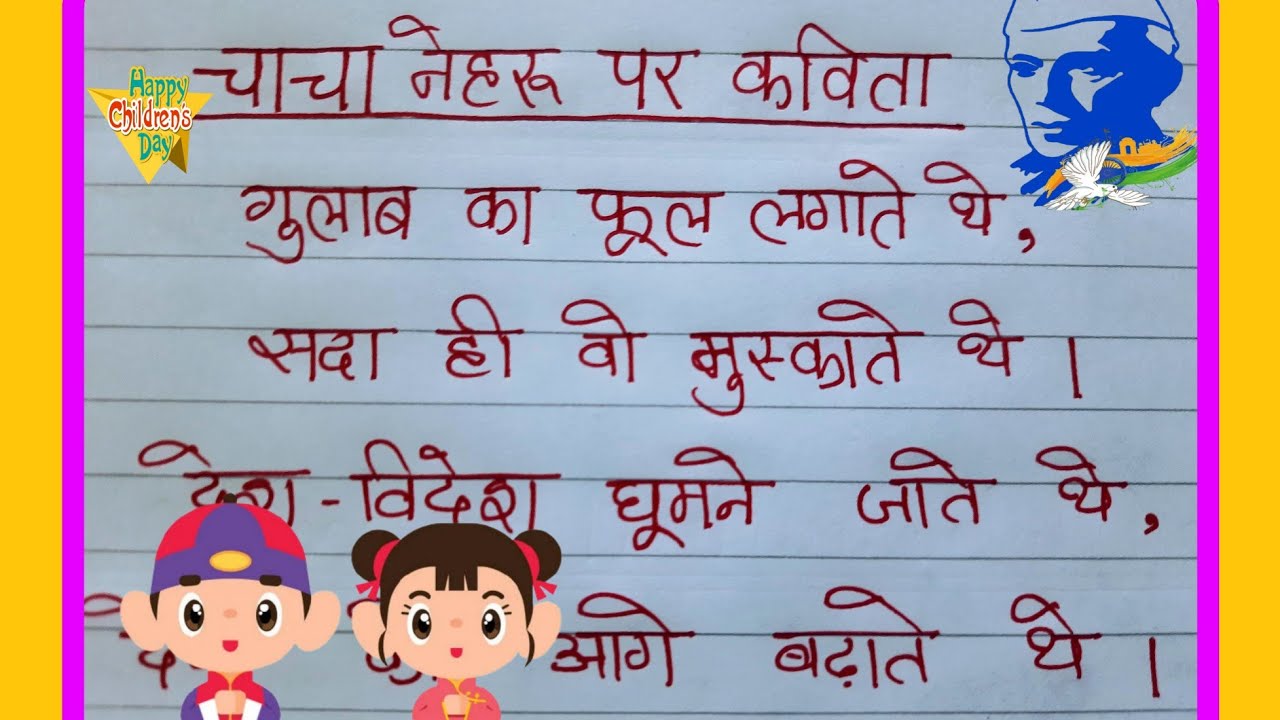 चाचा नेहरू पर कविता
Happy
Children's
Day
गुलाब का फूल लगाते थे,
सदा ही वो मुस्काते थे।
देश-विदेश घूमने जाते थे,
आगे बढ़ाते थे।